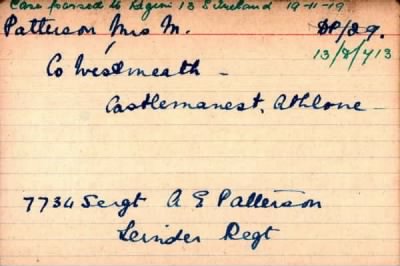 Case passed to Region 13 S Ireland 19-11-19
Patterson Mrs M. DP/29.
13/8/413
Co Westmeath -
Castlemanest, Athlone -
7734 Sergt A E Patterson
Leinder Regt